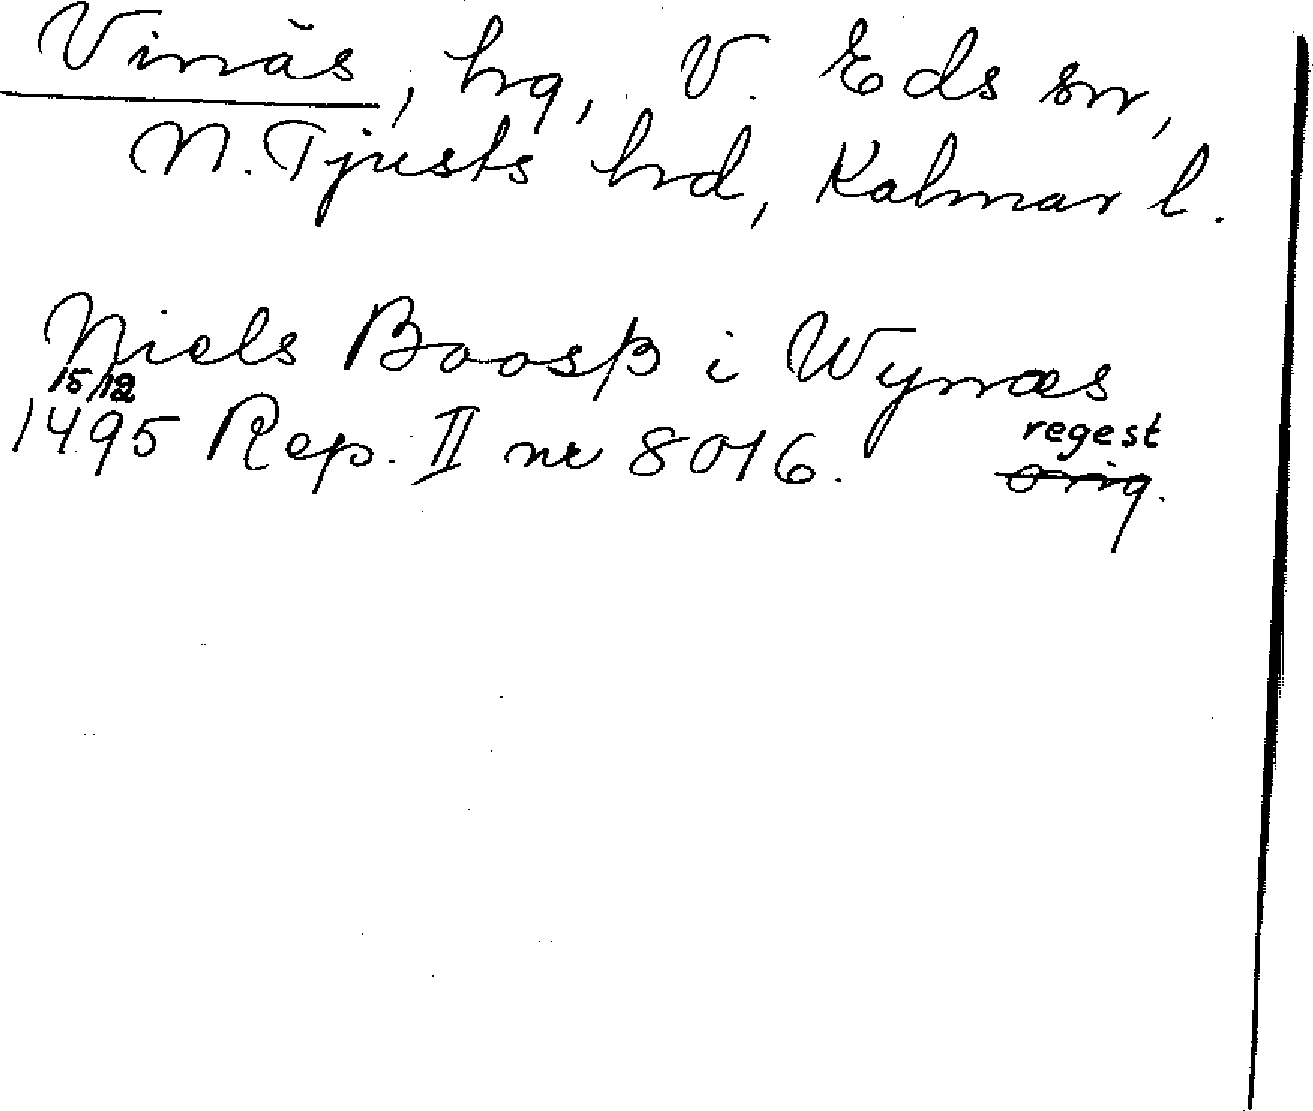 Vinäs, hrg, V. Eds sn,
N. Tjusts hrd, Kalmar l.
Niels Boosß i Wynæs
15/12
1495 Rep. II nr 8016. regest
orig.